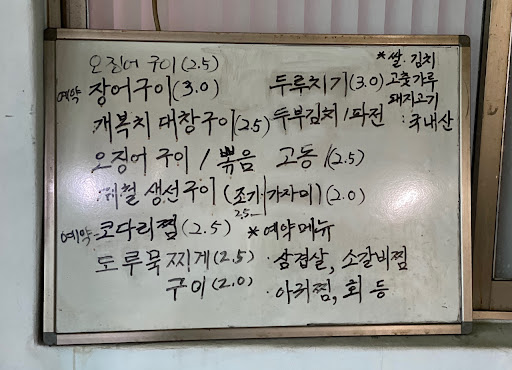 오징어 구이 (2.5)
*쌀. 김치
예약 장어구이(3.0) 두루치기(3.0) 고춧가루
돼지고기
개복치 대창구이(2.5) 두부김치/파전 :국내산
오징어 구이 / 볶음 고동/(2.5)
제철 생선구이 (조기/가자미) (2.0)
2.5
예약-코다리찜(2.5) *예약메뉴
도루묵찌게(2.5) ·삼겹살, 소갈비찜
구이(2.0) ·아귀찜, 회 등